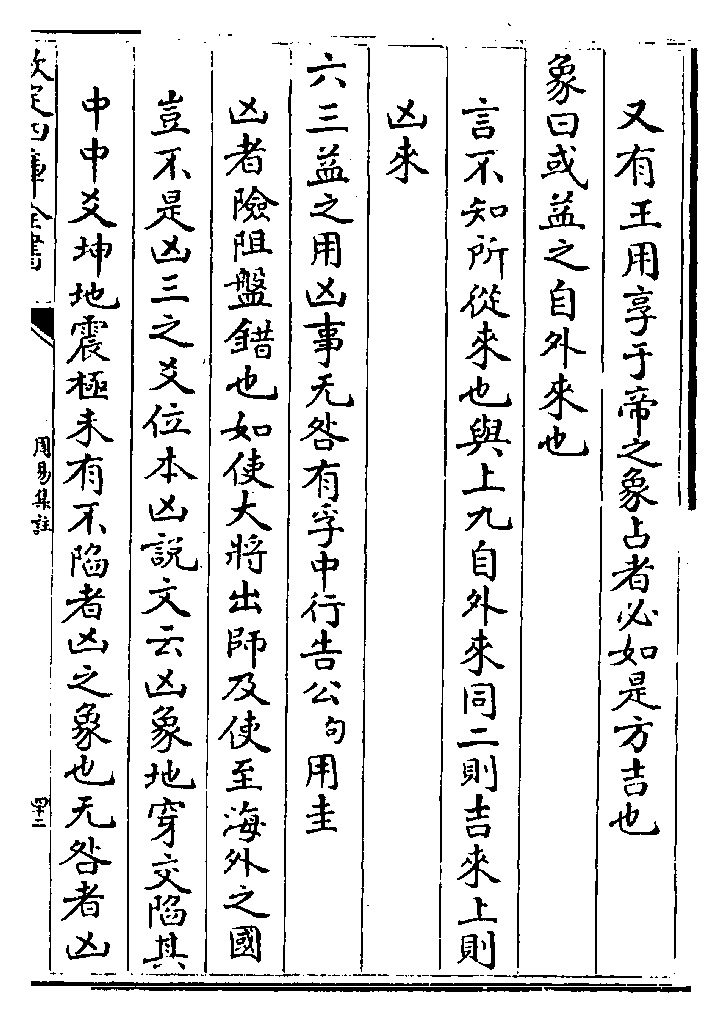 又有王用享于帝之象占者必如是方吉也
象曰或益之自外來也
言不知所從來也與上九自外來同二則吉來上則
凶來
六三益之用凶事无咎有孚中行告公句用圭
凶者險阻盤錯也如使大將出師及使至海外之國
豈不是凶三之爻位本凶說文云凶象地穿交陷其
中中爻坤地震極未有不陷者凶之象也无咎者凶
欽定四庫全書
周易集註
四十二